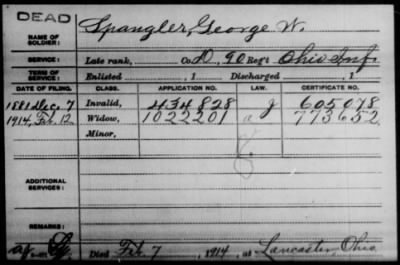 DEAD
NAME OF SOLDIER: Spangler, George W.
SERVICE: Late rank, Co. D, 90 Reg't Ohio Inf.
TERM OF SERVICE: Enlisted , 1 Discharged , 1
DATE OF FILING. CLASS. APPLICATION NO. LAW. CERTIFICATE NO.
1881 Dec. 7 Invalid, 434828 605078
1914, Feb. 12 Widow, 1022201 773652
Minor,
ADDITIONAL SERVICES:
REMARKS:
Died Feb. 7, 1914, at Lancaster, Ohio